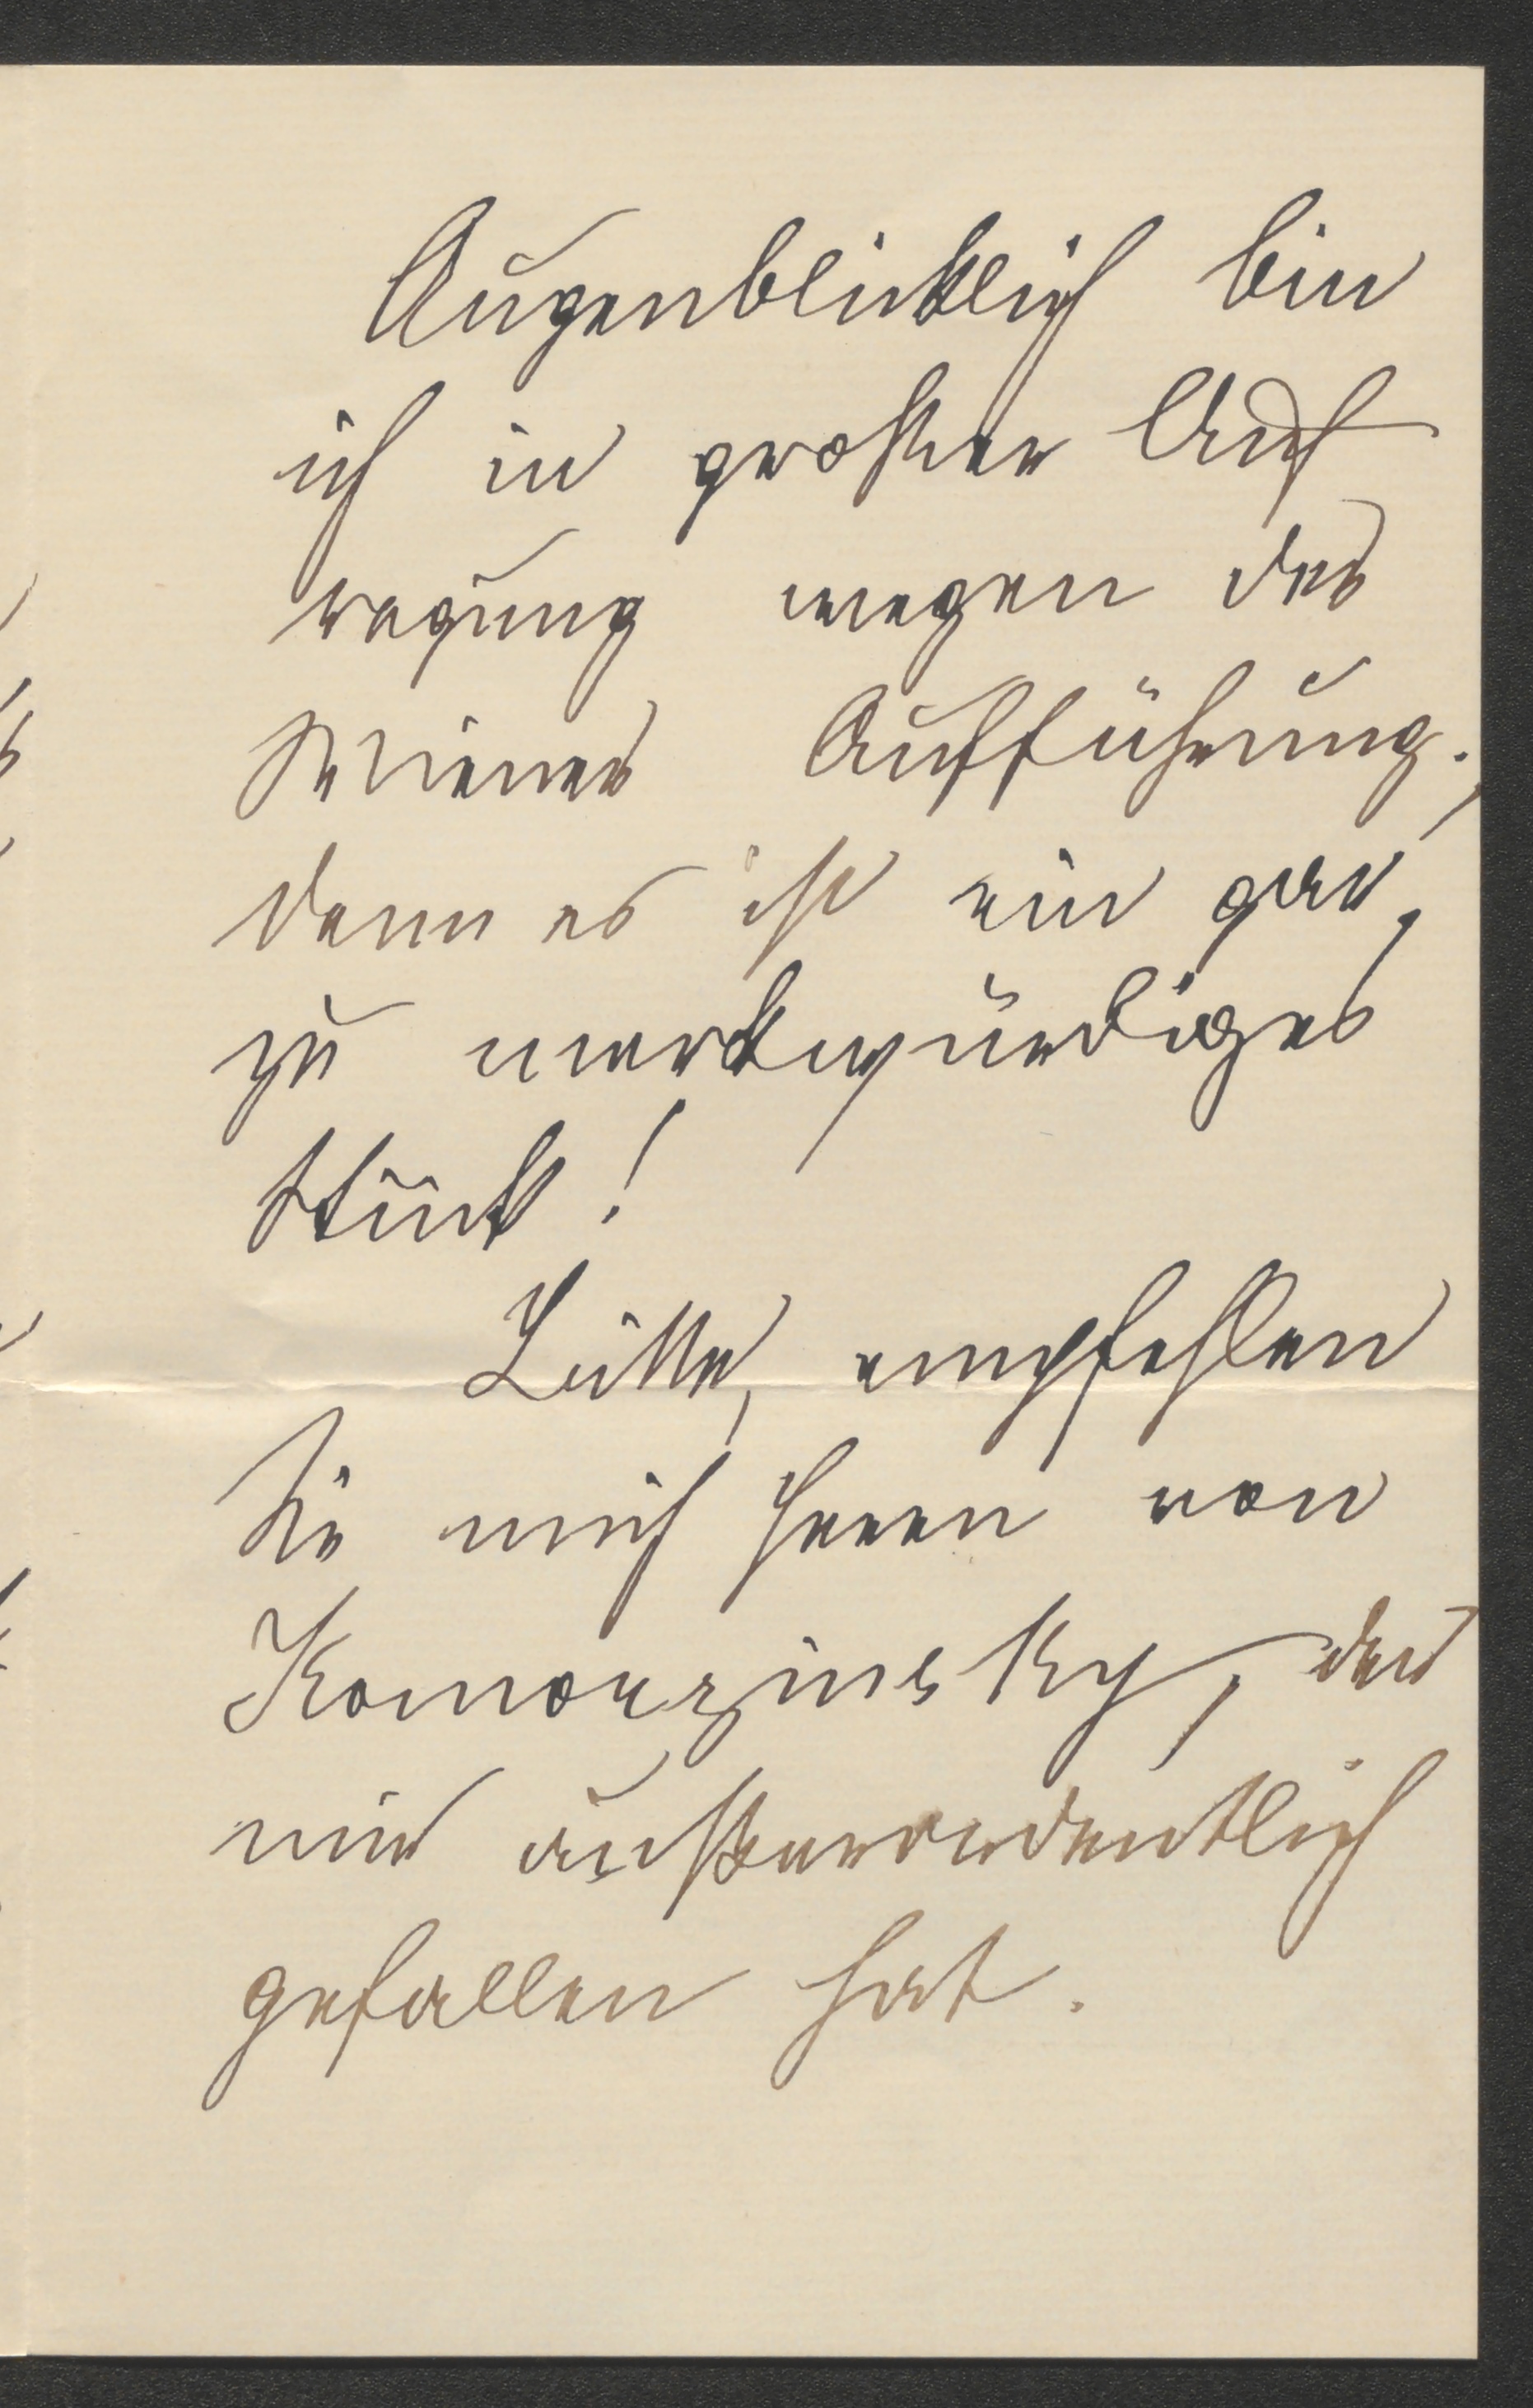 Augenblicklich bin
ich in großer Auf
regung wegen der
Wiener Aufführung.,
denn es ist ein gar,
zu merkwürdiges
Stück!
Bitte, empfehlen
Sie mich Herrn von
Komorzinsky, der
mir außerordentlich
gefallen hat.